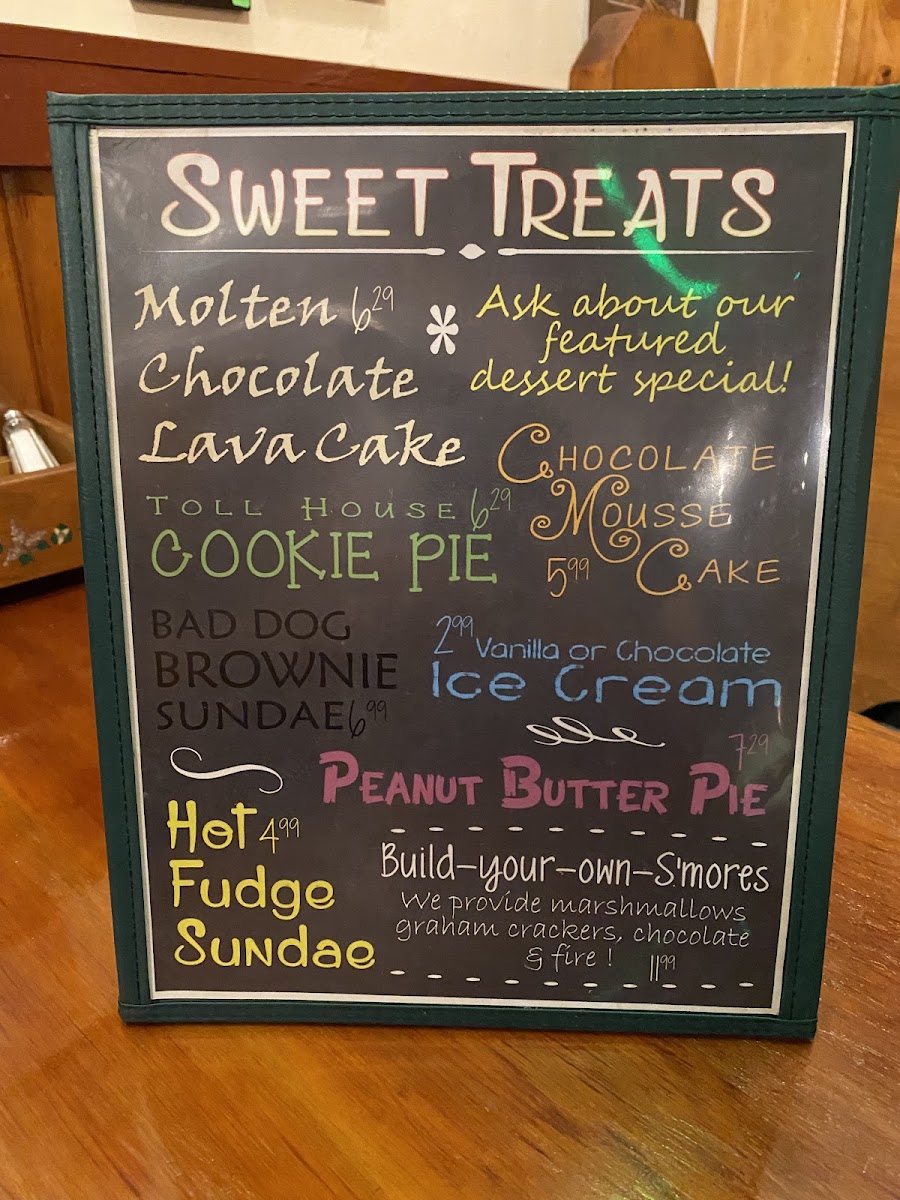 SWEET TREATS
Molten 6.29
Chocolate
Lava Cake
* Ask about our
featured
dessert special!
TOLL HOUSE 6.29
COOKIE PIE
CHOCOLATE
MOUSSE
5.99 CAKE
BAD DOG
BROWNIE
SUNDAE 6.99
2.99 Vanilla or Chocolate
Ice Cream
7.29
PEANUT BUTTER PIE
Hot 4.99
Fudge
Sundae
Build-your-own-S'mores
We provide marshmallows
graham crackers, chocolate
& fire ! 11.99